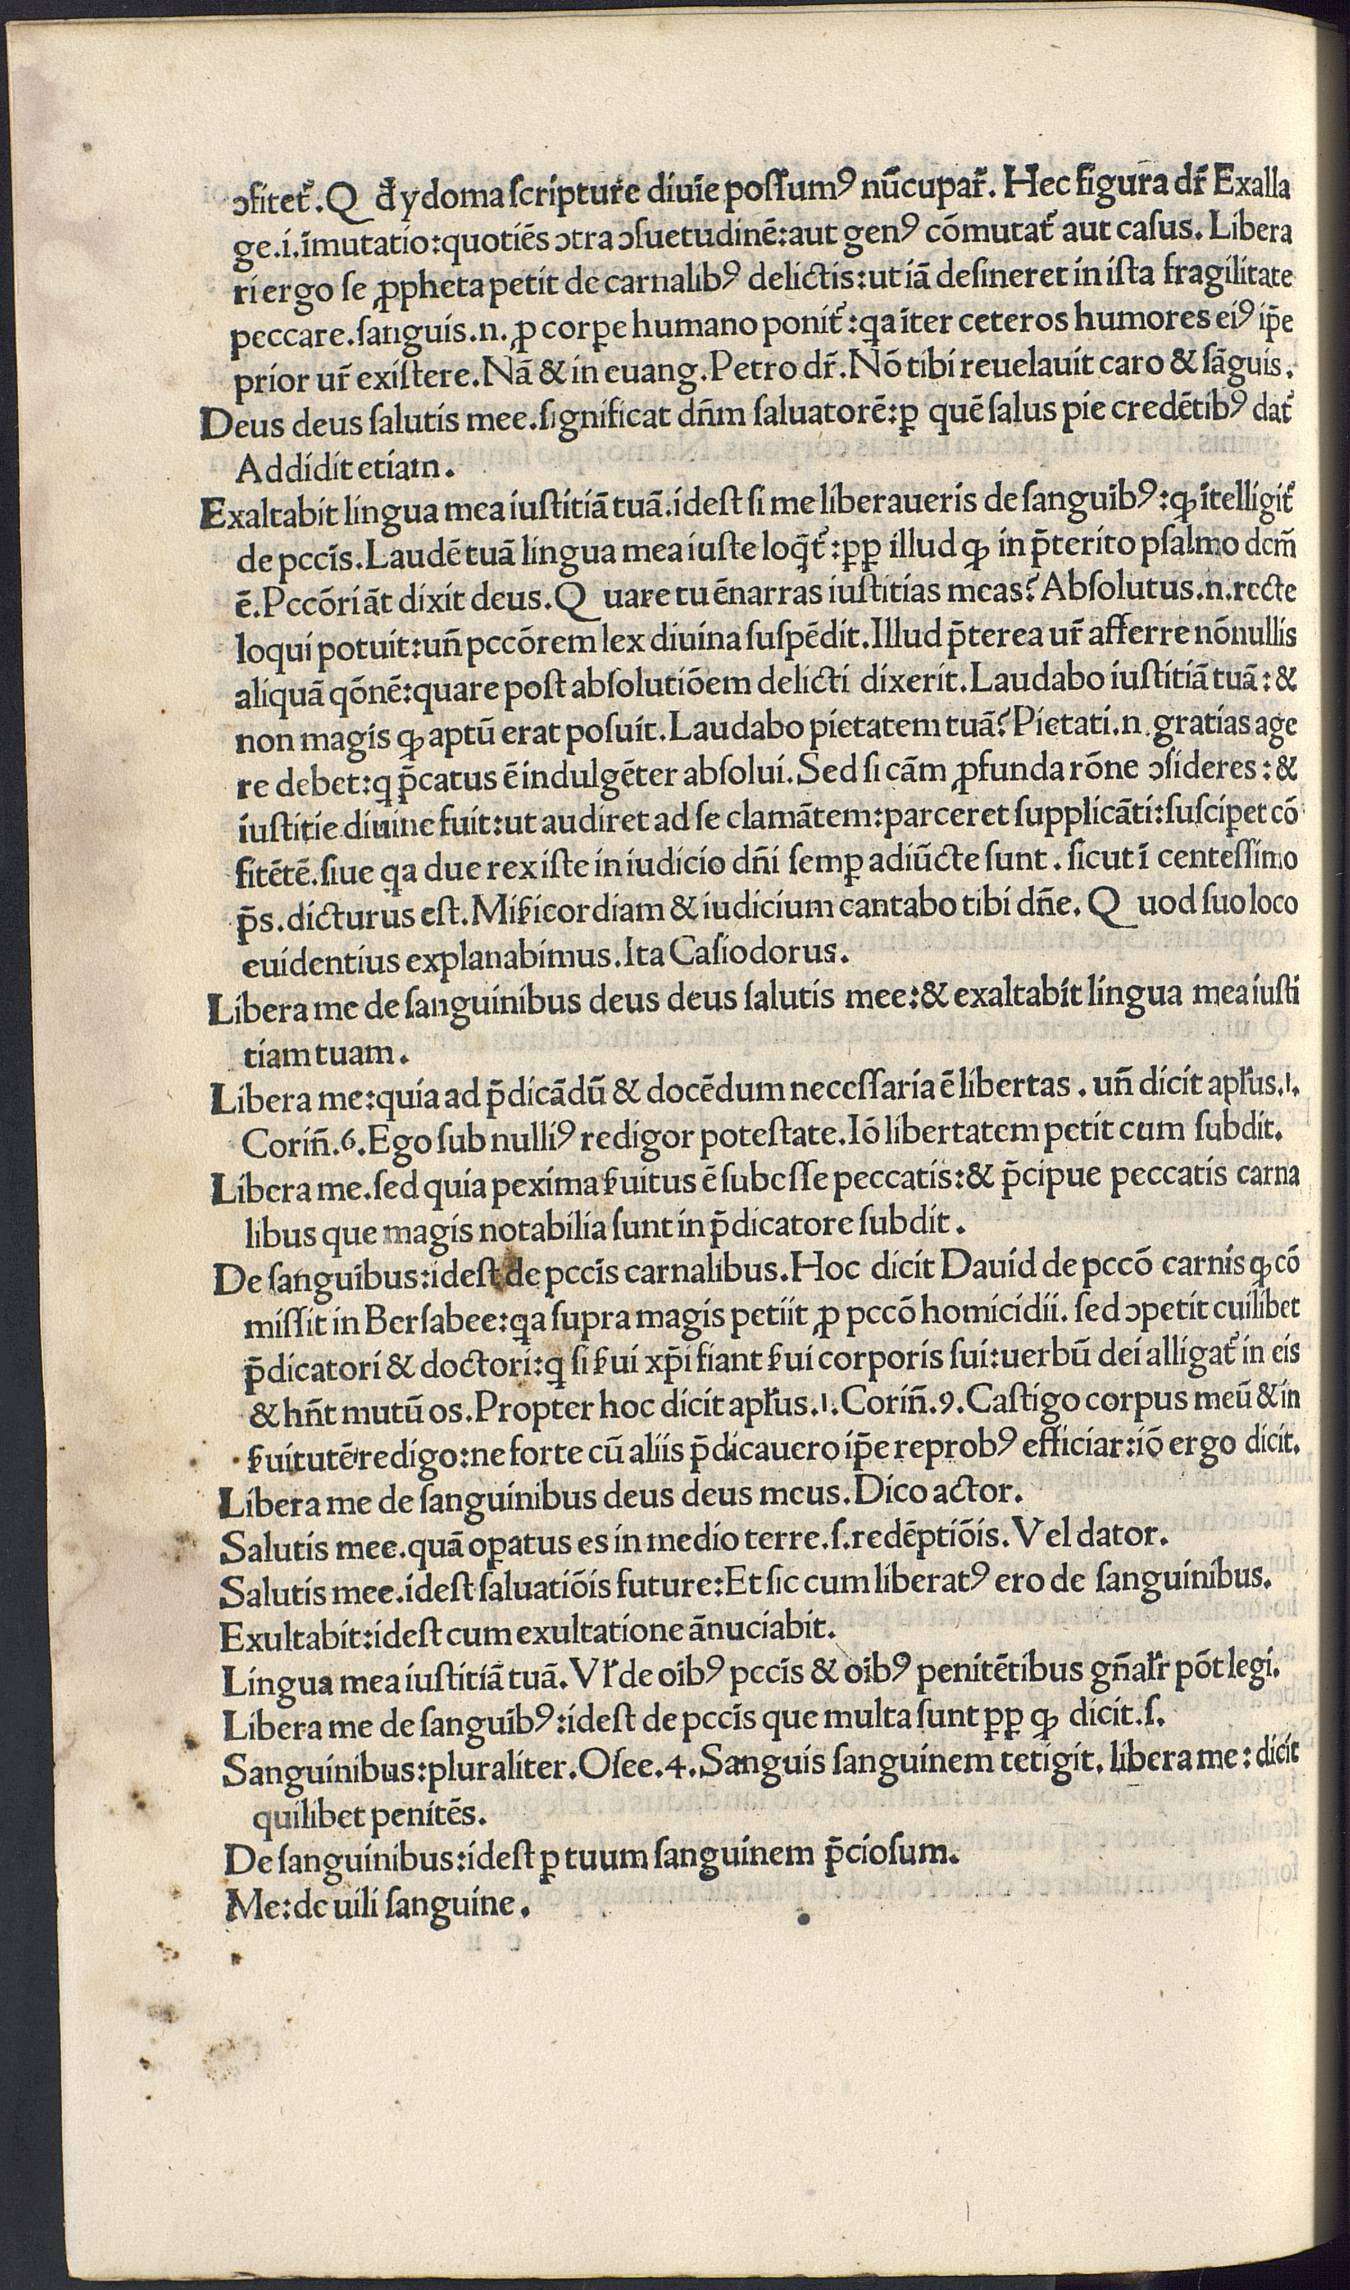 ↄfitet᷑. Q ꝺ̄ ydoma scripture diuīe possumꝰ nūcupar̄. Hec figura dr̄ Exalla
ge.i.īmutatio:quotiēs ↄtra ↄsuetudinē:aut genꝰ cōmutat᷑ aut casus. Libera
ri ergo se ꝓpheta petit de carnalibꝰ delictis:ut iā desineret in ista fragilitate
peccare.sanguis.n.ꝓ corꝑe humano ponit᷑:qa īter ceteros humores eiꝰ ip̄e
prior ur̄ existere.Nā & in euang.Petro dr̄.Nō tibi reuelauit caro & sāguis.
Deus deus salutis mee.significat dn̄m saluatorē:ꝑ quē salus pie credētibꝰ dat᷑
Addidit etiam.
Exaltabit lingua mea iustitiā tuā.idest si me liberaueris de sanguībꝰ:ꝙ ītelligit᷑
de pccīs.Laudē tuā lingua mea iuste loq̄t᷑:ꝑꝑ illud ꝙ in p̄terito psalmo dcm̄
ē.Pccōri āt dixit deus.Q uare tu ēnarras iustitias meas?Absolutus.n.recte
loqui potuit:un̄ pccōrem lex diuina suspēdit.Illud p̄terea ur̄ afferre nōnullis
aliquā qōnē:quare post absolutiōem delicti dixerit.Laudabo iustitiā tuā:&
non magis ꝙ aptū erat posuit.Laudabo pietatem tuā?Pietati.n.gratias age
re debet:q p̄catus ē indulgēter absolui.Sed si cām ꝓfunda rōne ↄsideres:&
iustitie diuine fuit:ut audiret ad se clamātem:parceret supplicāti:susciꝑet cō
fitētē.siue qa due rex iste in iudicio dn̄i semꝑ adiūcte sunt.sicut ī centessimo
p̄s.dicturus est.Miẜicordiam & iudicium cantabo tibi dn̄e.Q uod suo loco
euidentius explanabimus.Ita Casiodorus.
Libera me de sanguinibus deus deus salutis mee:& exaltabit lingua mea iusti
tiam tuam.
Libera me:quia ad p̄dicādū & docēdum necessaria ē libertas.un̄ dicit apl̄us.1.
Corin̄.6.Ego sub nulliꝰ redigor potestate.Iō libertatem petit cum subdit.
Libera me.sed quia pexima ẜuitus ē subesse peccatis:& p̄cipue peccatis carna
libus que magis notabilia sunt in p̄dicatore subdit.
De sanguībus:idest de pccīs carnalibus.Hoc dicit Dauid de pccō carnis ꝙ cō
missit in Bersabee:qa supra magis petiit ꝓ pccō homicidii.sed ↄpetit cuilibet
p̄dicatori & doctori:q si ẜui xp̄i fiant ẜui corporis sui:uerbū dei alligat᷑ in eis
& hn̄t mutū os.Propter hoc dicit apl̄us.1.Corin̄.9.Castigo corpus meū & in
ẜuitutē redigo:ne forte cū aliis p̄dicauero ip̄e reprobꝰ efficiar:iō ergo dicit.
Libera me de sanguinibus deus deus meus.Dico actor.
Salutis mee.quā oꝑatus es in medio terre.s.redēptiōis.Vel dator.
Salutis mee.idest saluatiōis future:Et sic cum liberatꝰ ero de sanguinibus.
Exultabit:idest cum exultatione ānuciabit.
Lingua mea iustitiā tuā.Vl̄ de oībꝰ pccīs & oībꝰ penitētibus gn̄alr̄ pōt legi.
Libera me de sanguībꝰ:idest de pccīs que multa sunt ꝑꝑ ꝙ dicit.s.
Sanguinibus:pluraliter.Osee.4.Sanguis sanguinem tetigit.libera me:dicit
quilibet penitēs.
De sanguinibus:idest ꝑ tuum sanguinem p̄ciosum.
Me:de uili sanguine.